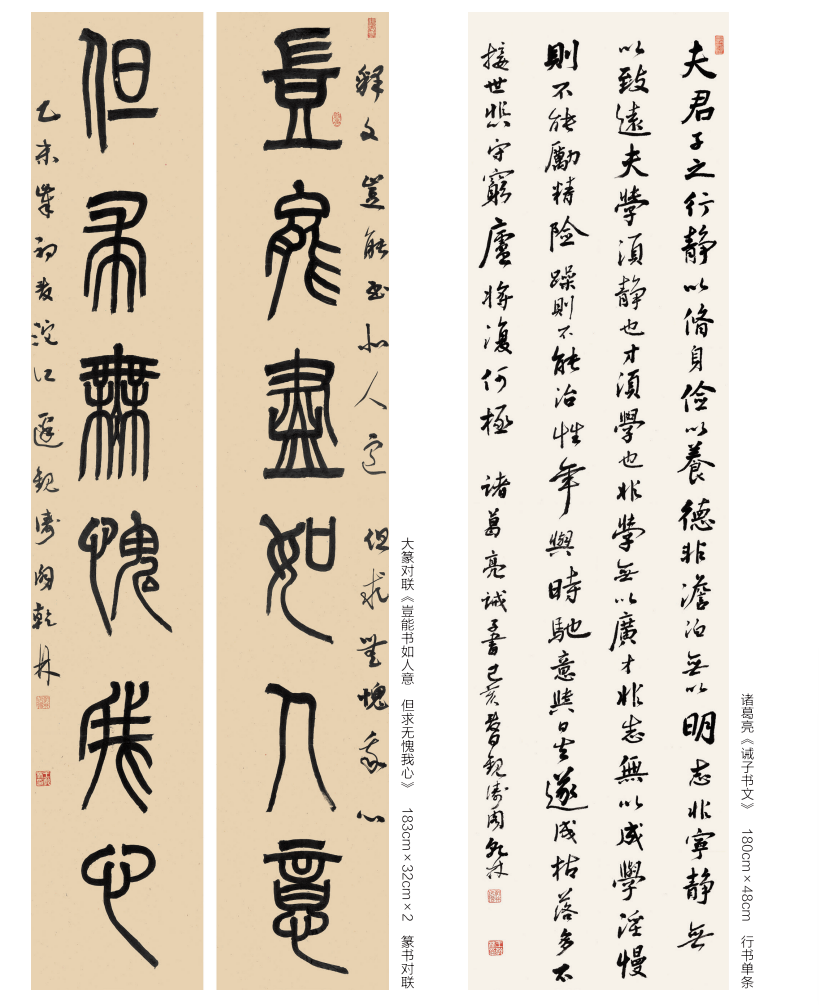 诸葛亮《诫子书文》 180cm×48cm 行书单条
夫君子之行静以脩身俭以養德非澹泊無以明志非寧静無
以致遠夫學須静也才須學也非學無以廣才非志無以成學淫慢
則不能勵精险躁則不能冶性年與時馳意與日去遂成枯落多不
接世悲守窮廬將復何極 諸葛亮诫子書己亥春觀濤阁乾林
大篆对联《豈能书如人意 但求无愧我心》 183cm×32cm×2 篆书对联
釋文 豈能尽如人意 但求無愧我心
豈能盡如人意
但求無愧我心
乙未岁初春沱江邊觀濤阁乾林